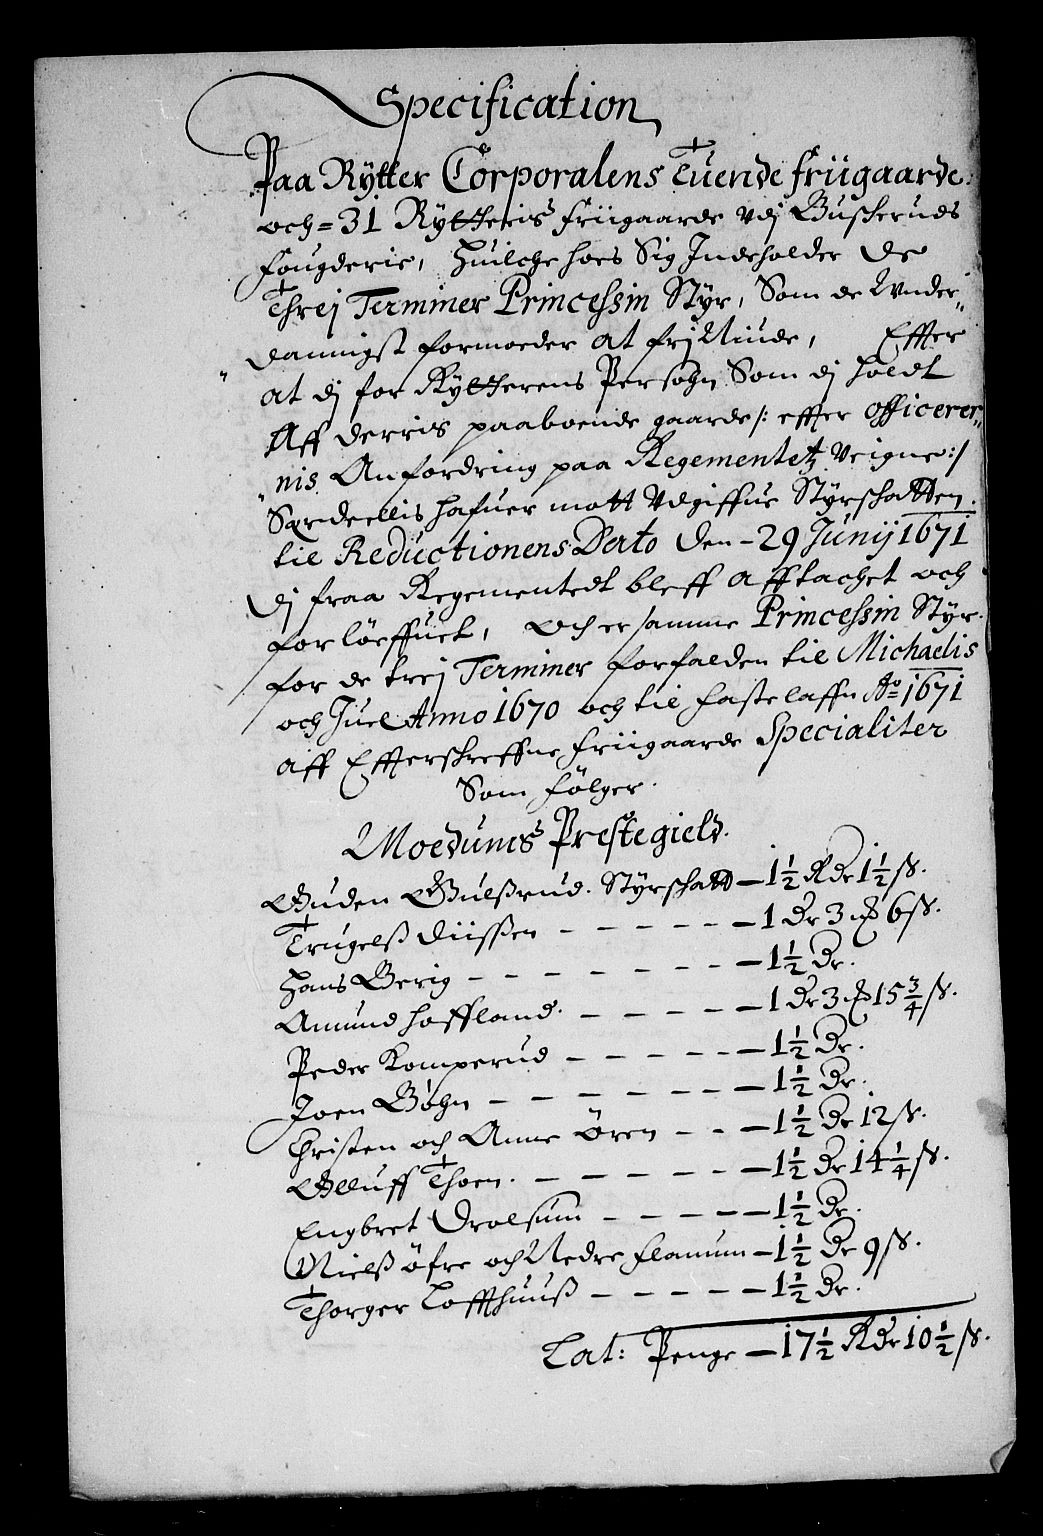 Specification
Paa Rytter Corporalens Tuende friigaarde
och = 31 Rytteris friigaarde Vdj Buscheruds
fougderie, Huilche hoes Sig Indeholder De
Threj Terminer Princessin Styr, Som de Vnder„
„dannigst formoeder at frj Niude, Effter
at dj for Rytterens Persohn Som dj holdt
Aff derris paaboende gaarde /: effter officerer„
„nis Anfordring paa Regementetz Veigne :/
Særdeelis hafuer mott Vdgiffue Styrschatten
til Reductionens Dato Den - 29 Junij 1671
dj fraa Regementedt bleff afftachet och
forløffuet, och er samme Princessin Styr
for de trej Terminer forfalden til Michaelis
och Juel Anno 1670 och til fastelaffn Ao 1671
aff Effterschreffne friigaarde Specialiter
Som følger.
Moedums Prestegield.
Guden Gulssrud. Styrschatt — 1½ Rdr 1½ ß.
Trugelss Diissen — 1 Dr 3 ₰ 6 ß.
Hans Berig — 1½ Dr.
Amund Haffland. — 1 Dr 3 ₰ 15¾ ß.
Peder Komperud — 1½ Dr.
Joen Bøhn — 1½ Dr.
Christen och Anne Ören — 1½ Dr 12 ß.
Olluff Thoen. — 1½ Dr 14¼ ß.
Engbret Drolsum — 1½ Dr.
Nielss øfre och Nedre flanum — 1½ Dr 9 ß.
Thorger Loffthuuss — 1½ Dr.
Lat: Penge — 17½ Rdr 10½ ß.